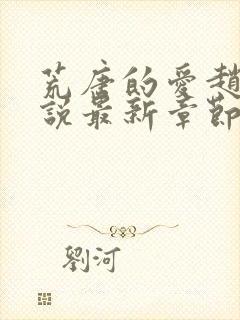 荒唐的愛趙
說最新章節
劉河